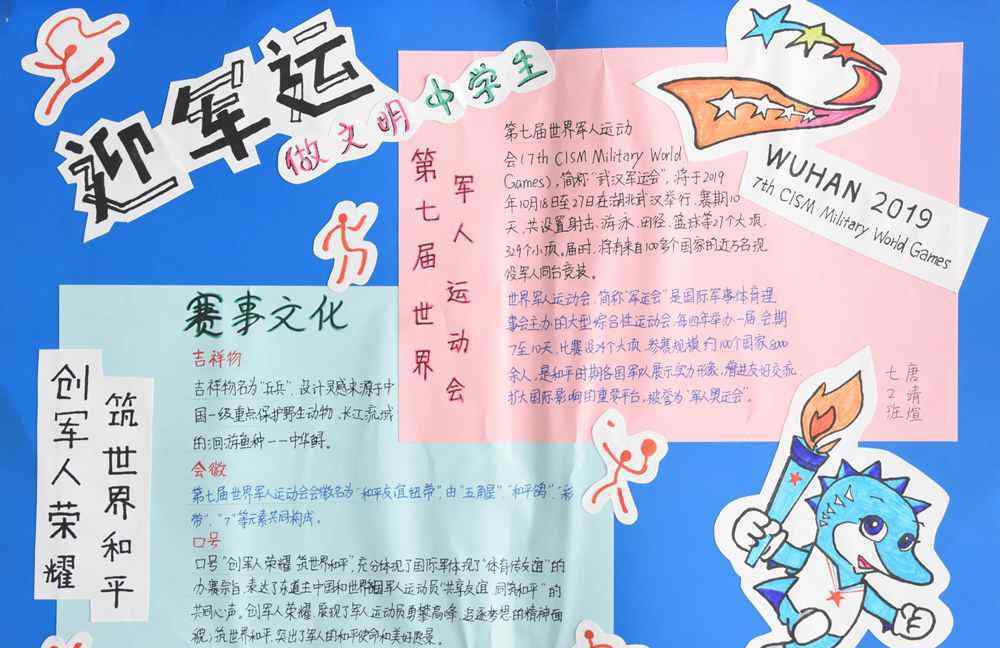 迎军运
做文明中学生
第七届世界
军人运动会
第七届世界军人运动
会(7th CISM Military World
Games),简称"武汉军运会",将于2019
年10月18日至27日在湖北武汉举行,赛期10
天,共设置射击、游泳、田径、篮球等27个大项、
329个小项。届时,将有来自100多个国家的近万名现
役军人同台竞技。
世界军人运动会,简称"军运会"是国际军事体育理
事会主办的大型综合性运动会,每四年举办一届,会期
7至10天,比赛设大项,参赛规模约100个国家8000
余人,是和平时期各国军队展示实力形象、增进友好交流、
扩大国际影响的重要平台,被誉为"军人奥运会"。
WUHAN 2019
7th CISM Military World Games
七2班
唐靖煊
赛事文化
吉祥物
吉祥物名为"兵兵",设计灵感来源于中
国一级重点保护野生动物、长江流域
的洄游鱼种——中华鲟。
会徽
第七届世界军人运动会会徽名为"和平友谊纽带",由"五角星"、"和平鸽"、"彩
带"、"7"等元素共同构成。
口号
口号"创军人荣耀,筑世界和平",充分体现了国际军体现了"体育传友谊"的
办赛宗旨,表达了东道主中国和世界各国军人运动员"共享友谊,同筑和平"的
共同心声。创军人荣耀,展现了军人运动员勇攀高峰、追逐梦想的精神面
貌;筑世界和平,突出了军人的和平使命和美好愿景。
创军人荣耀
筑世界和平